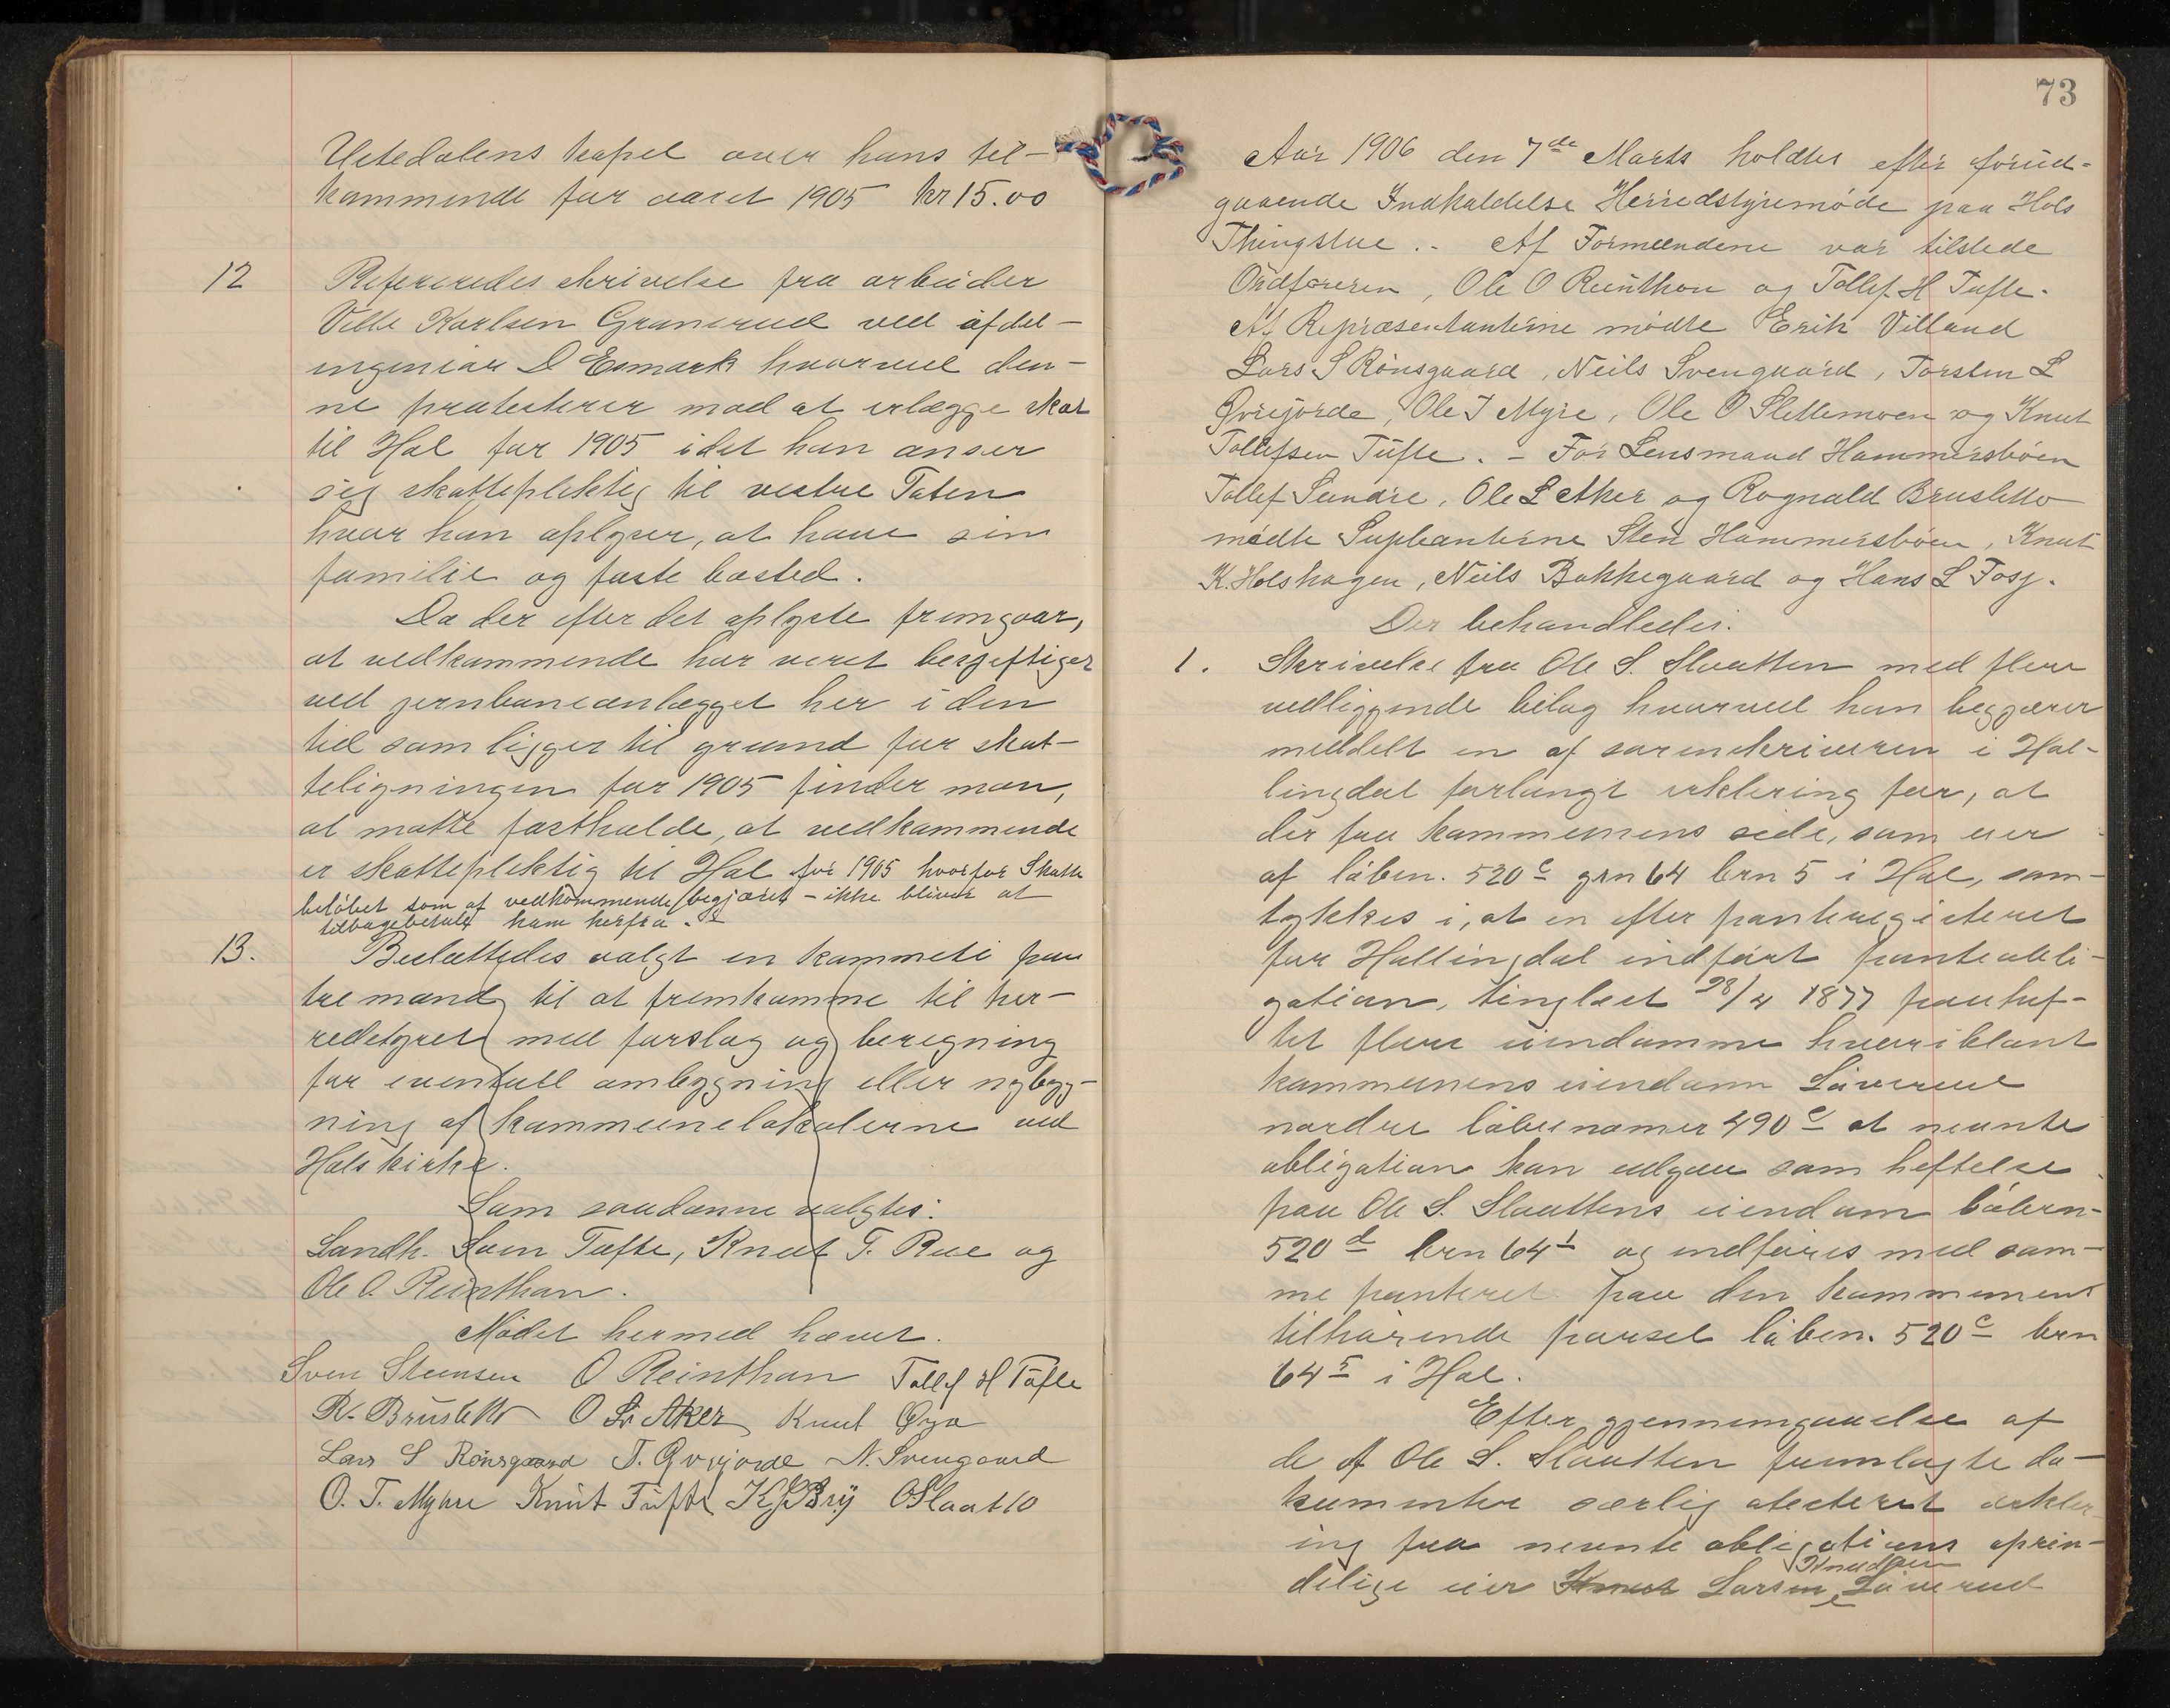 Ustedalens kapel over hans til-
kommende for aaret 1905 kr 15.00
12 Refereredes skrivelse fra arbeider
Karlsen Granerud ved afdel-
ingeniør Esmark hvorved den-
ne protesterer mod at erlægge skat
til Hol for 1905 idet han anser
sig skattepliktig til vestre Toten
hvor han oplyser, at have sin
familie og faste bosted.
Da der efter det oplyste fremgaar,
at vedkommende har veret besjeftiget
ved jernbaneanlægget her i den
tid som ligger til grund for skat-
teligningen for 1905 finder man,
at matte fastholde, at vedkommende
er skattepliktig til Hol for 1905 hvorfor Skatte
beløbet som af vedkommende begjæret - ikke bliver at
tilbagebetale ham herfra.-
13. Besluttedes valgt en kommete paa
tre mand til at fremkomme til her-
redstyret med forslag og beregning
for eventuell ombygning eller nybyg-
ning af kommunelokalerne ved
Hols kirke.
Som saadanne valgtes:
Landh. Sven Tufte, Knut T. Rue og
Ole O. Reinthon.
Mødet hermed hævet.
Sven Steensen O Reinthon Tollef H Tufte
R. Brusletto O L Aker Knut Øyo
Lars S Rønsgaard T. Øvrejorde N. Svengaard
O. T. Myhre Knut Tufte O Slaatto
73
Aar 1906 den 7de Marts holdtes efter forud-
gaaende Indkaldelse Herredstyremøde paa Hols
Thingstue.- Af Formændene var tilstede
Ordføreren, Ole O Reinthon og Tollef H Tufte.
Af Repræsentanterne mødte Erik Villand
Lars S Rønsgaard, Neils Svengaard, Torsten L
Øvrejorde, Ole T Myre, Ole O Slettemoen og Knut
Tollefsen Tufte. - For Lensmand Hammersbøen
Tollef Sundre, Ole L Aker og Rognald Brusletto
mødte Suplanterne Sten Hammersbøen, Knut
K. Holshagen, Neils Bakkegaard og Hans L Fosj.
Der behandledes:
1. Skrivelse fra Ole S. Slaatten med flere
vedliggende bilag hvorved han begjærer
meddelt en af sorenskriveren i Hal-
lingdal forlangt erklering for, at
der fra kommunens side, som eier
af løben. 520c grn 64 brn 5 i Hol, sam-
tykkes i, at en efter panteregisteret
for Hallingdal indført panteobli-
gation, tinglæst 28/4 1877 paahef-
tet flere eiendomme hvoriblant
kommunens eiendom Såverud
nordre løbenomer 490c at nevnte
obligation kan udgaa som heftelse
paa Ole S. Slaattens eiendom løben-
520d brn 64 1 og indføres med sam-
me panteret paa den kommunen
tilhørende parsel løben. 520c brn
64 5 i Hol.
Efter gjennemgaaelse af
de af Ole S. Slaatten fremlagte do-
kumenter særlig atesteret erkler-
ing fra nevnte obligations oprin-
Knudsen
delige eier Knut Larsen Såverud